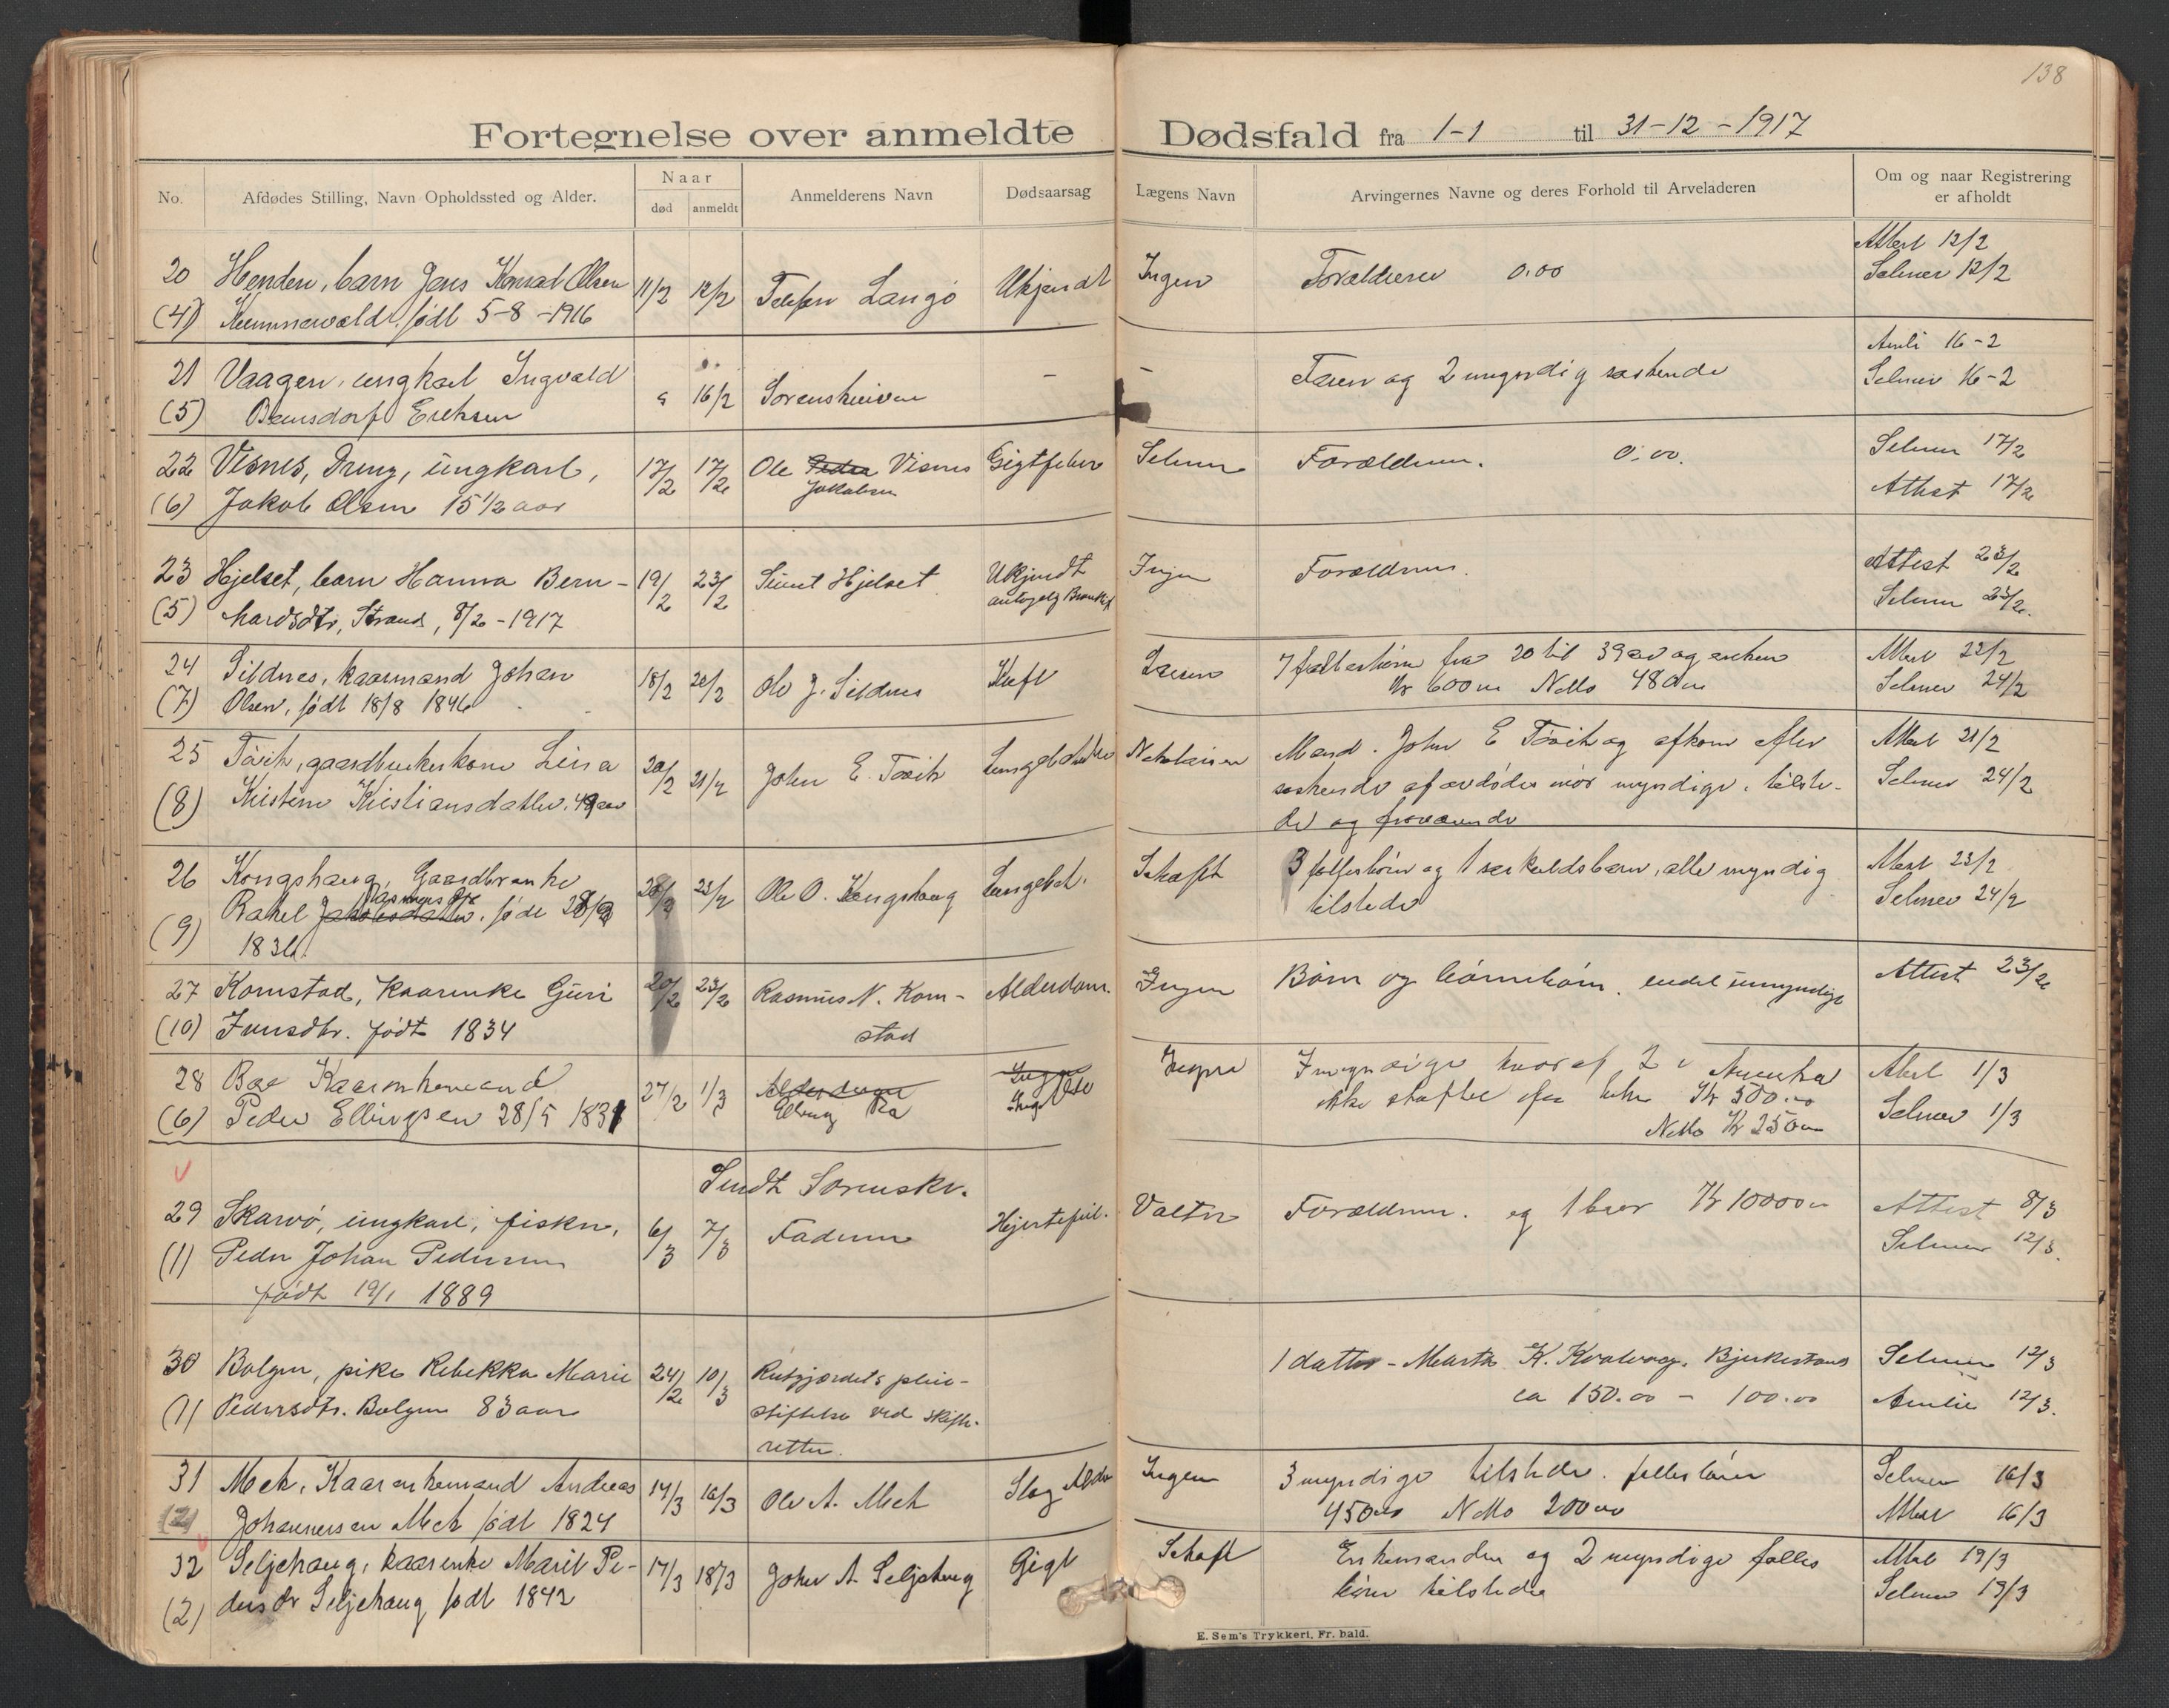 138
Fortegnelse over anmeldte Dødsfald fra 1-1 til 31-12-1917
No.
Afdødes Stilling, Navn Opholdssted og Alder.
Naar
død
anmeldt
Anmelderens Navn
Dødsaarsag
Lægens Navn
Arvingernes Navne og deres Forhold til Arveladeren
Om og naar Registrering
er afholdt
20 Henden, barn Jens Konrad Olsen 11/2 12/2 Langö Ukjendt Ingen Forældrene 0.00 Attest 12/2
(4) født 5-8-1916 Selmer 12/2
21 Vaagen, ungkarl Ingvald 16/2 Sorenskriveren - - Faren og 2 myndig søskende 16-2
(5) Erichsen Selmer 16-2
22 Visnes, Dreng, ungkarl, 17/2 17/2 Ole Peder Visnes Gigtfeber Selmer Forældrene. 0.00. Selmer 17/2
(6) Jakob Olsen 15 1/2 aar Jakobsen Attest 17/2
23 Hjelset, barn Hanna Bern- 19/2 23/2 Hjelset Ukjendt Ingen Forældrene. Attest 23/2
(5) hardsdtr, Strand, 8/2-1917 Selmer 23/2.
24 Sildnes, kaarmand Johan 18/2 20/2 Ole J. Sildnes Kræft 7 fællesbørn fra 20 til 39 aar og enken Attest 22/2
(7) Olsen, født 18/8 1846 Kr 600.00 Netto 480.00 Selmer 24/2
25 Tøvik, gaardbrukerkone Lina 20/2 21/2 John E. Tøvik Nikolaisen Mand. John E Tøvik og afkom efter Attest 21/2
(8) Kristine Kristiansdatter. 49 aar søskende af avdødes mor myndige, tilste- Selmer 24/2
de og fraværende
26 Kongshaug, Gaardbr enke 20/2 23/2 Ole O. Kongshaug Lungebet. Schaft 3 fællesbørn og 1 særkuldsbarn, alle myndig Attest 23/2
Rasmusdtr
(9) Rakel Jakobsdatter. født 28/2 tilstede Selmer 24/2
1836
27 Kornstad, kaarenke Guri 20/2 23/2 Rasmus N. Korn- Alderdom. Ingen Børn og børnebørn. endel umyndige Attest 23/2
(10) Iversdtr. født 1834 stad
28 Bae Kaarenkemand 27/2 1/3 Alderdom Ingen Ingen 7 myndige hvoraf 2 i Amerika Attest 1/3
(6) Peder Ellingsen 28/5 1831 Elling ikke skiftet efter Kr 300.00 Selmer 1/3
Netto Kr 250.00
Sendt Sorenskr.
29 Skarvø, ungkarl, fisker, 6/3 7/3 Faderen Hjertefeil. Valter Forældrene. og 1 bror Kr 1000.00 Attest 8/3
(1) Peder Johan Pedersen Selmer 12/3.
født 19/1 1889
30 Bolgen, pike Rebekka Marie 24/2 10/3 Rutsfjordets pleie- 1 datter - Marta K. Kvalvaag, Bjerkestrand Selmer 12/3
(1) Pedersdtr. Bolgen 83 aar stiftelse ved skifte- ca 150.00 - 100.00 12/3.
retten.
31 Mek, Kaarenkemand Andreas 14/3 16/3 Ole A. Mek Slag Ingen 3 myndige tilstede. fællesbørn Selmer 16/3
(2) Johannessen Mek født 1824 450.00 Netto 200.00 Attest 16/3
32 Seljehaug, kaarenke Marit Pe- 17/3 18/3 John A. Seljehaug Gigt Schaft Enkemanden og 2 myndige fælles Attest 19/3
(2) dersdtr Seljehaug født 1842 børn tilstede Selmer 19/3
E. Sem's Trykkeri, Fr. hald.